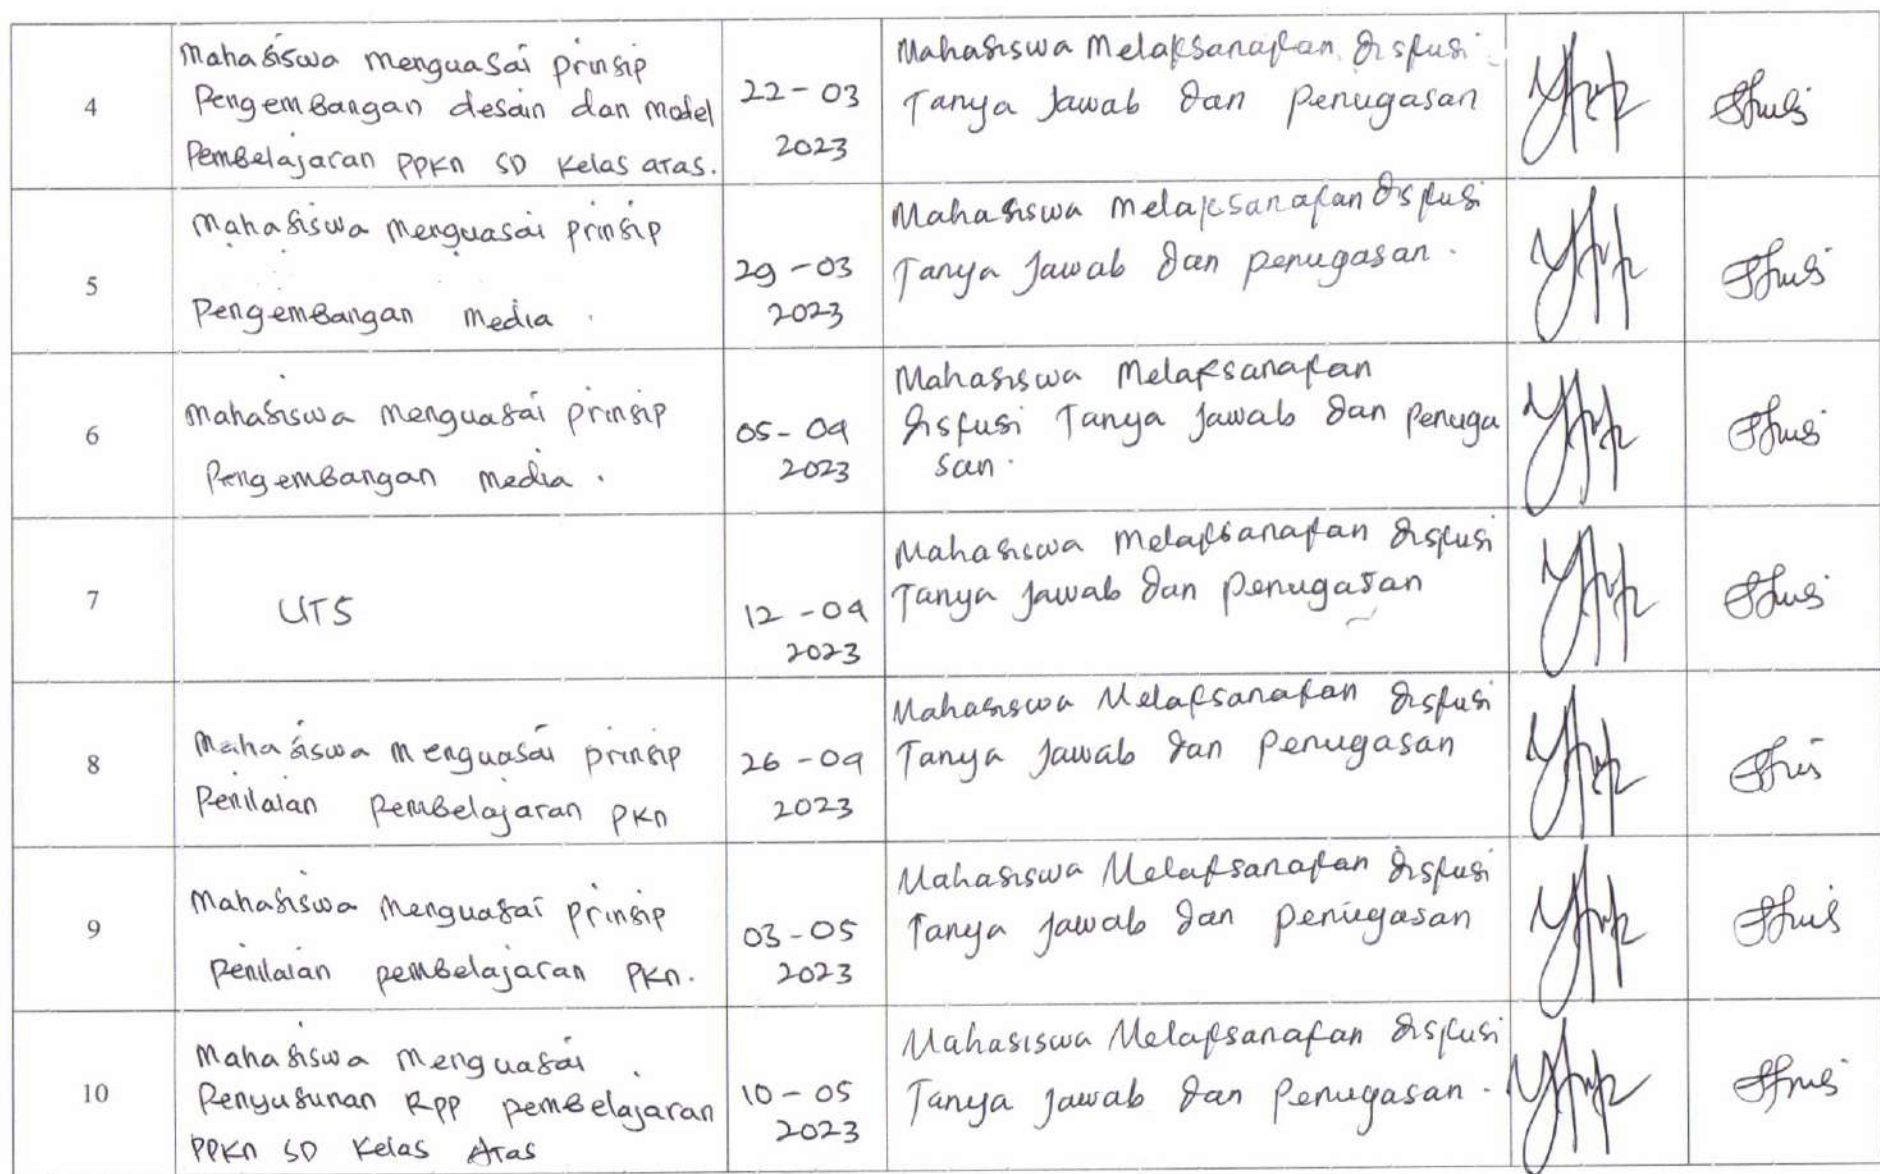 4
Mahasiswa menguasai prinsip
Pengembangan desain dan model
Pembelajaran PPKn SD Kelas atas.
22-03
2023
Mahasiswa Melaksanakan diskusi
Tanya Jawab dan Penugasan
5
Mahasiswa Menguasai prinsip
Pengembangan Media.
29-03
2023
Mahasiswa Melaksanakan diskusi
Tanya Jawab dan penugasan.
6
Mahasiswa Menguasai prinsip
Pengembangan Media.
05-04
2023
Mahasiswa Melaksanakan
diskusi Tanya Jawab dan Penuga
san.
7
UTS
12-04
2023
Mahasiswa Melaksanakan diskusi
Tanya Jawab dan Penugasan
8
Mahasiswa Menguasai prinsip
Penilaian pembelajaran PKn
26-04
2023
Mahasiswa Melaksanakan diskusi
Tanya Jawab dan Penugasan
9
Mahasiswa Menguasai Prinsip
Penilaian pembelajaran PKn.
03-05
2023
Mahasiswa Melaksanakan diskusi
Tanya Jawab dan Penugasan
10
Mahasiswa Menguasai
Penyusunan RPP pembelajaran
PPKn SD Kelas Atas
10-05
2023
Mahasiswa Melaksanakan diskusi
Tanya Jawab dan Penugasan.